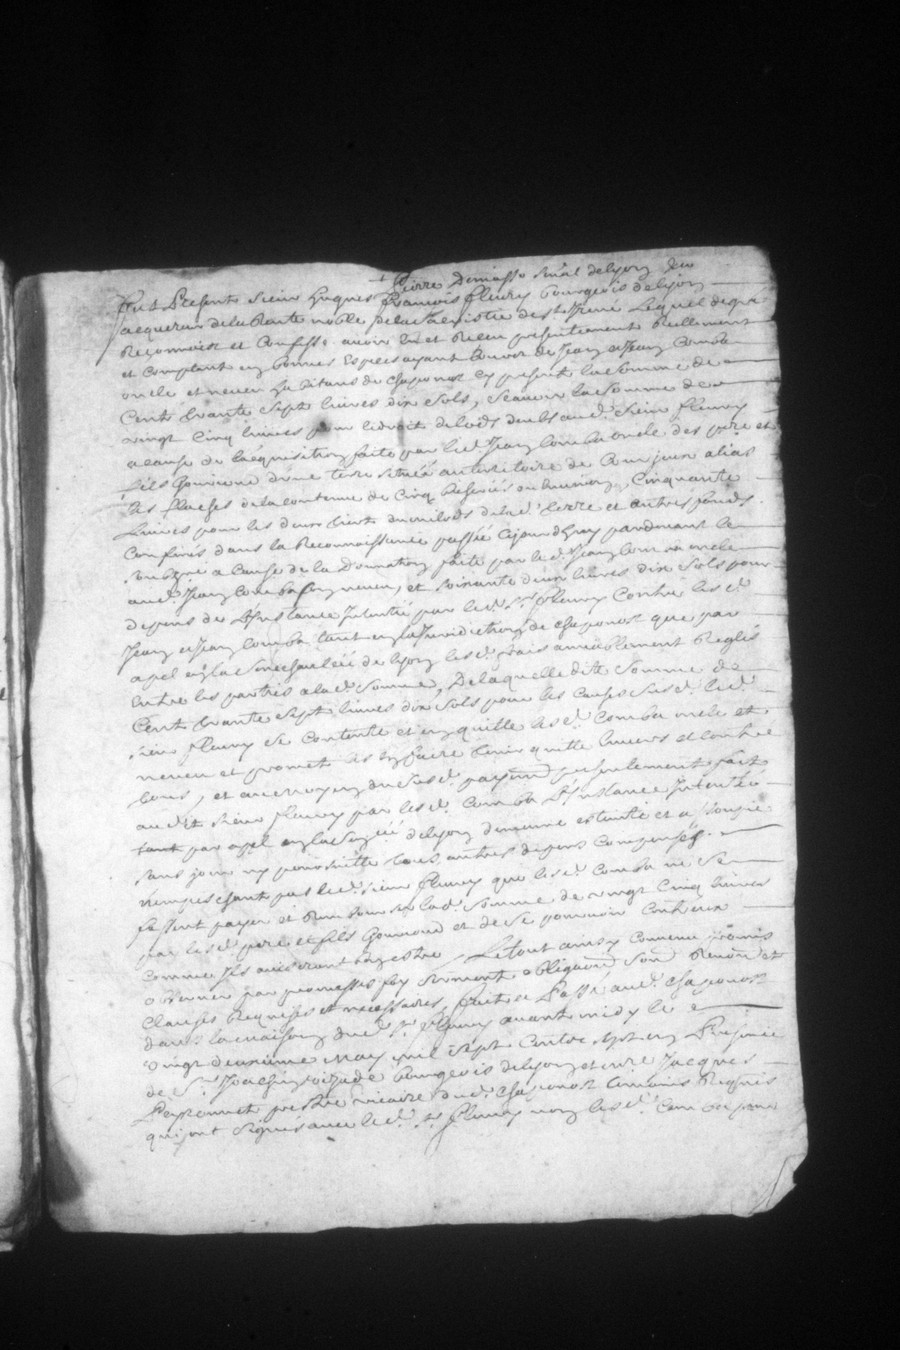 Pierre Demasso Snal de lyon
Fut Present Sieur hugues francois fleury bourgeois de lyon
acquereur de la Rante noble de la Sacristie de st Irené Lequel de gré
Reconnoist et Confesse avoir eu et Receu presentement Reellement
et Comptant en bonnes Especes ayant Cours de Jean et Jean Comba
oncle et neveu habitans de chaponost Cy presents la Somme de
Cent trante Sept livres dix Sols, Scavoir la Somme de
vingt Cinq livres pour le droit de lods deubs aud. Sieur fleury
a cause de lacquisition faite par led. Jean Comba oncle des pere et
fils Gonnoud d'une terre située au territoire de Courjeux alias
les flaches de la contenue de Cinq bicherées ou environ, Cinquante
Livres pour les deux tiers du milods de lad. terre et autres fonds
Confinés dans la Reconnoissance passée cejourdhuy pardevant le
soubzné a Cause de la Donnation faite par led. Jean Comba oncle
aud. Jean Comba son neveu, et soixante deux livres dix Sols pour
depens de L'Instance Intentée par led. Sr. fleury Contre les d.
Jean et Jean Comba tant en la Juridiction de chaponost que par
apel en la Senechaussée de lyon lesd. frais amiablement Reglés
Entre les parties a lad. Somme, De laquelle dite Somme de
Cent trante Sept livres dix Sols pour les Causes Susd. led.
sieur fleury Se Contente et en quitte les d. Comba oncle et
neveu et promet les en faire tenir quitte Envers et contre
tous, et au moyen du Susd. payement presentement fait
audit sieur fleury par lesd. Comba L'Instance Intentée
tant par apel en la Sen.ée de lyon demeure esteinte et assoupie
sans jour ny poursuitte tous autres depens Compensés.
n'empeschant pas led. sieur fleury que lesd. Comba ne Se
fassent payer et Rembourser lad. Somme de vingt Cinq livres
par lesd. pere et fils Gonnoud et de Se pourvoir Contreux
Comme Ils aviseront bon estre, Le tout ainsy Convenu promis
observer par promesses foy Serment obligation, Son Renon et
Clauses Requises et necessaires, fait et Passé aud. chaponost
dans la maison dud. Sr. fleury avant midy le
vingt deuxieme may mil Sept Cent Sept en Presence
de Sr. Joachim bourgeois de lyon et mre Jacques
Peyronnet prestre vicaire dud. chaponost temoins Requis
qui ont Signés avec led. Sr. fleury non lesd. Comba pour